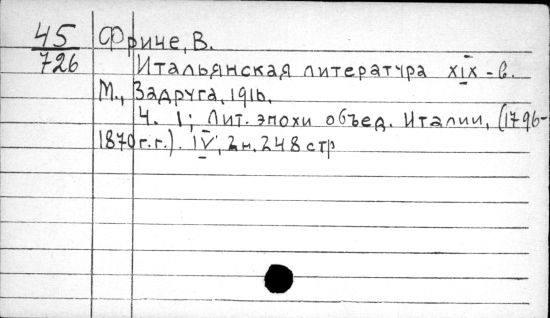 45 Фриче, В.
726
Итальянская литература XIX-в.
М., Задруга, 1916.
Ч. 1; Лит. эпохи объед. Италии, (1796-
1870 г.г.). IV, 2н, 248 стр